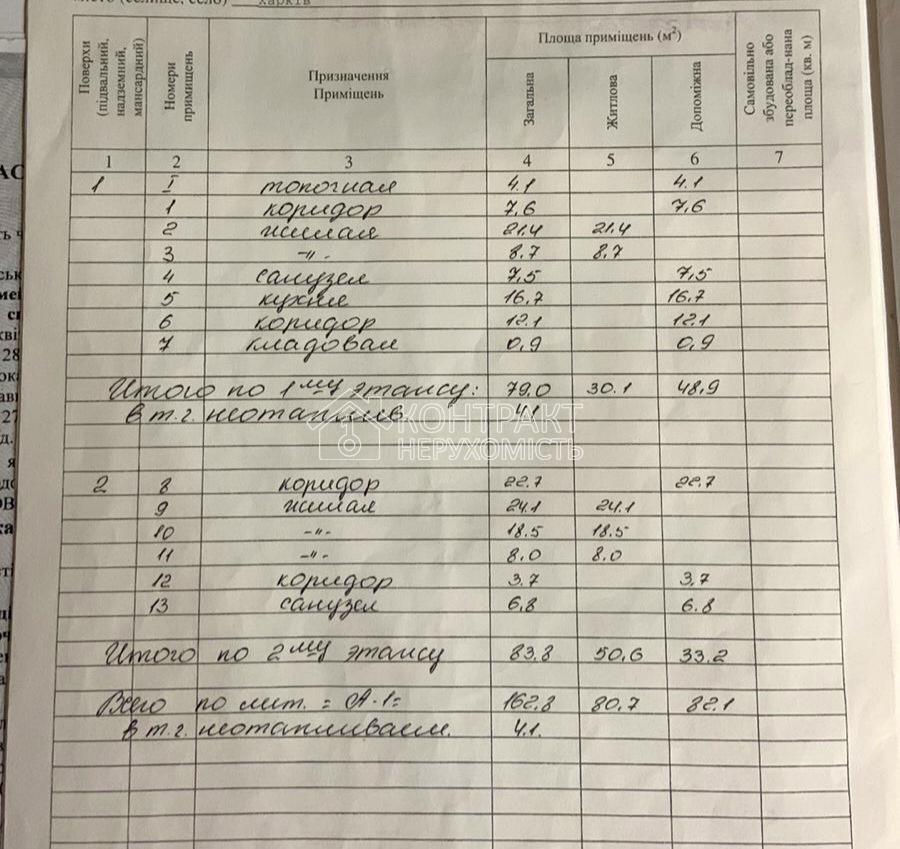 Харків
Поверхи (підвальний, надземний, мансардний)
Номери примищень
Призначення Приміщень
Площа приміщень (м²)
Загальна
Житлова
Допоміжна
Самовільно збудована або переоблад-нана площа (кв. м)
1 2 3 4 5 6 7
1 I топочная 4.1 4.1
1 коридор 7,6 7,6
2 жилая 21.4 21.4
3 -"- 8.7 8.7
4 санузел 7,5 7,5
5 кухня 16,7 16,7
6 коридор 12.1 12.1
7 кладовая 0,9 0,9
Итого по 1му этажу: 79.0 30.1 48,9
в т.г. неотаплив. 4.1
КОНТРАКТ
НЕРУХОМІСТЬ
2 8 коридор 22.7 22.7
9 жилая 24.1 24.1
10 -"- 18.5 18.5
11 -"- 8.0 8.0
12 коридор 3.7 3.7
13 санузел 6,8 6.8
Итого по 2му этажу 83,8 50,6 33.2
Всего по лит. = А-1= 162.8 80,7 82.1
в т.г. неотапливаем. 4.1.